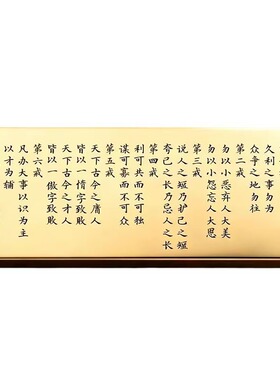 久利之事勿为
众争之地勿往
第二戒
勿以小恶弃人大美
勿以小怨忘人大恩
第三戒
说人之短乃护己之短
夸己之长乃忌人之长
第四戒
利可共而不可独
谋可寡而不可众
第五戒
天下古今之庸人
皆以一惰字致败
天下古今之才人
皆以一傲字致败
第六戒
凡办大事以识为主
以才为辅